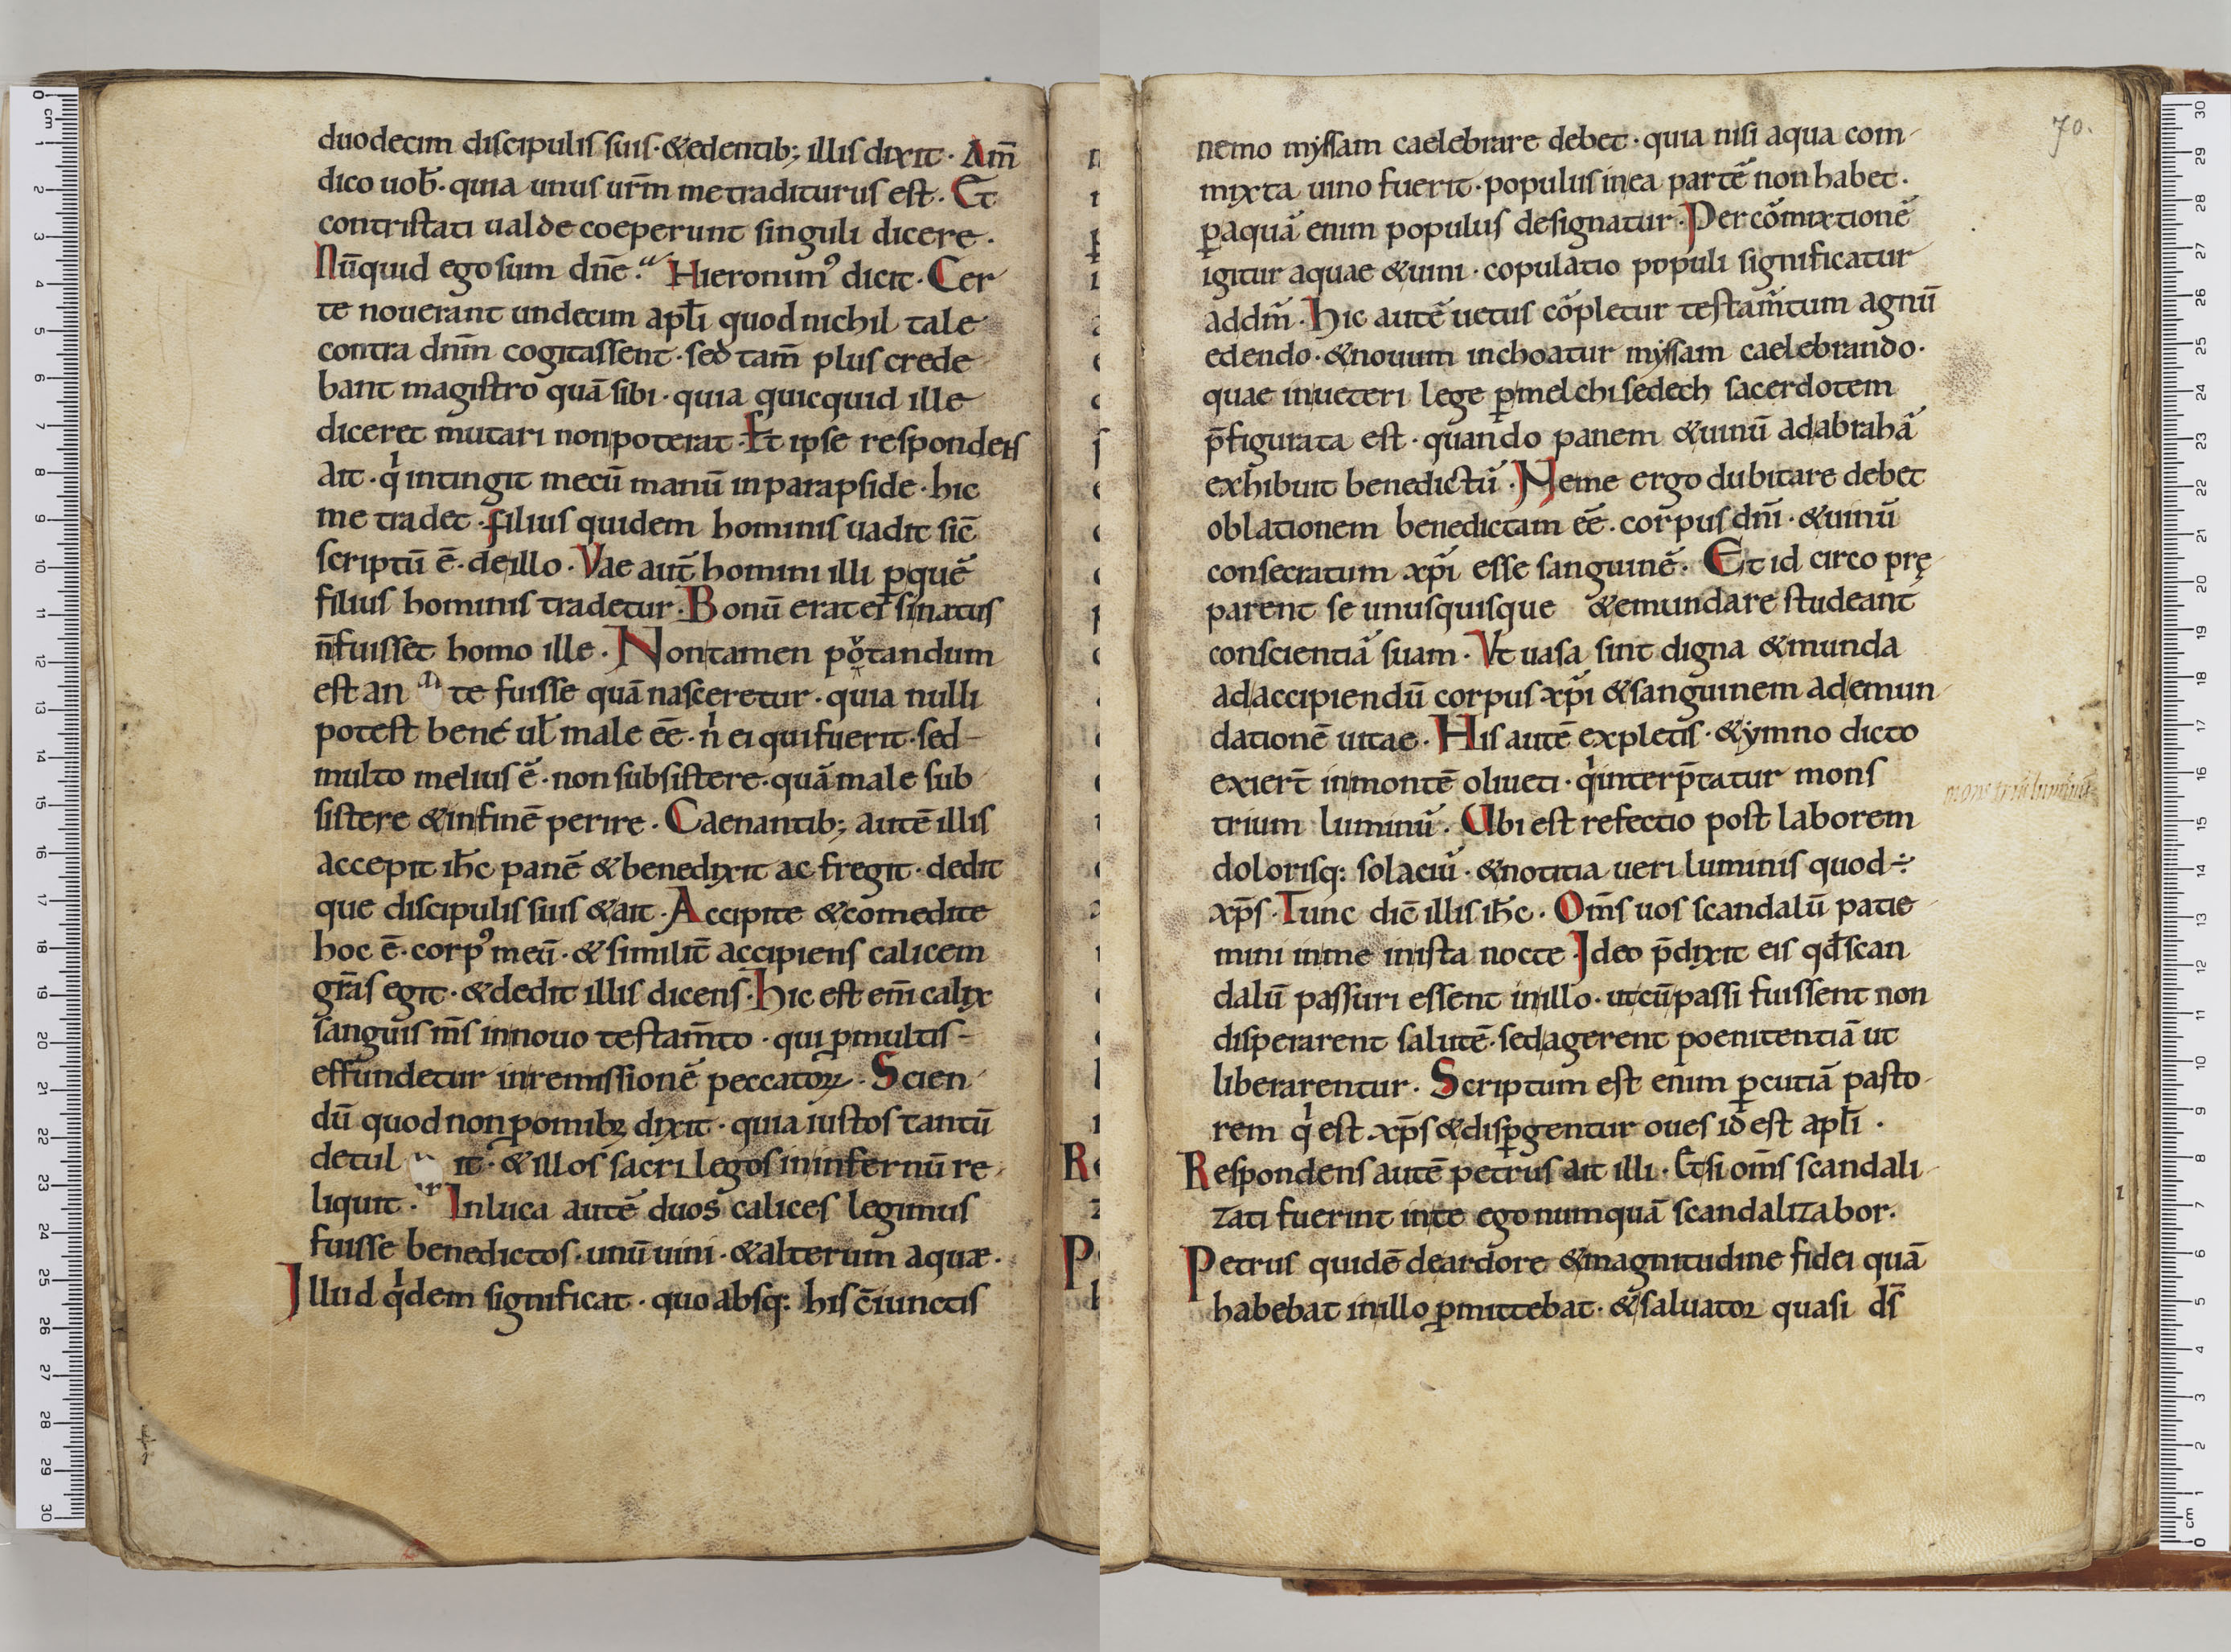 duodecim discipulis suis · &edentib; illis dixit · Am̄
dico uob̄ · quia unus urm̄ me traditurus est · Et
contristati ualde coeperunt singuli dicere ·
Nūquid ego sum dn̄e · Hieronim⁹ dicit · Cer
te nouerant undecim apl̄i quod nichil tale
contra dnm̄ cogitassent · sed tam̄ plus crede
bant magistro quā sibi · quia quicquid ille
diceret mutari non poterat · Et ipse respondens
ait · qͥ intingit mecū manū inparapside · hic
me tradet · filius quidem hominis uadit sic̄
scriptū ē · deillo · Vae aut̄ homini illi ꝑquē
filius hominis tradetur · Bonū erat ei sinatus
n̄fuisset homo ille · Nontamen pọtandum
est an te fuisse quā nasceretur · quia nulli
potest bene ul̄ male ēē · nͥ ei qui fuerit · sed
multo melius ē · non subsistere · quā male sub
sistere &infinē perire · Caenantib; autē illis
accepit ih̄c panē & benedixit ac fregit · dedit
que discipulis suis &ait · Accipite &comedite
hoc ē · corp⁹ meū · & similit̄ accipiens calicem
gr̄as egit · &dedit illis dicens · Hic est em̄ calix
sanguīs m̄s innouo testam̄to · qui ꝑmultis
effundetur inremissionē peccatoꝝ · Scien
dū quod non ꝑomnibꝫ dixit · quia iustos tantū
detul it · &illos sacrilegos ininfernū re
liquit · Inluca autē duos calices legimus
fuisse benedictos · unū uini · &alterum aquæ ·
Illud qͥdem significat · quo absq: his c̄iunctis
70.
nemo myssam caelebrare debet · quia nisi aqua com
mixta uino fuerit · populus inea partē non habet ·
ꝑaquā enim populus designatur · Per cōmixtionē
igitur aquae &uini · copulatio populi significatur
addm̄ · Hic autē uetus cōpletur testam̄tum agnū
edendo · &nouum inchoatur myssam caelebrando ·
quae inueteri lege ꝑmelchisedech sacerdotem
p̄figurata est · quando panem &uinū adabrahā
exhibuit benedictū · Neme ergo dubitare debet
oblationem benedictam ēē · corpus dn̄i · &uinū
consecratum xp̄i esse sanguinē · Et id circo prę
parent se unusquisque &emundare studeant
conscientiā suam · Vt uasa sint digna &munda
adaccipiendū corpus xp̄i &sanguinem ademun
dationē uitae · His autē expletis · &ymno dicto
exier̄t inmontē oliueti · qͥinterp̄tatur mons
mons triū luminū
trium luminū · Ubi est refectio post laborem
dolorisq: solaciū · &notitia ueri luminis quod ÷
xp̄s · Tunc dic̄ illis ih̄c · Om̄s uos scandalū patie
mini inme inista nocte · Ideo p̄dixit eis qd̄ scan
dalū passuri essent inillo · utcūpassi fuissent non
disperarent salutē · sedagerent poenitentiā ut
liberarentur · Scriptum est enim ꝑcutiā pasto
rem qͥ est · xp̄s &disꝑgentur oues id est apl̄i ·
Respondens autē petrus ait illi · Etsi om̄s scandali
zati fuerint inte ego numquā scandalizabor ·
Petrus quidē deardore &magnitudine fidei quā
habebat inillo ꝑmittebat · &saluator quasi ds̄